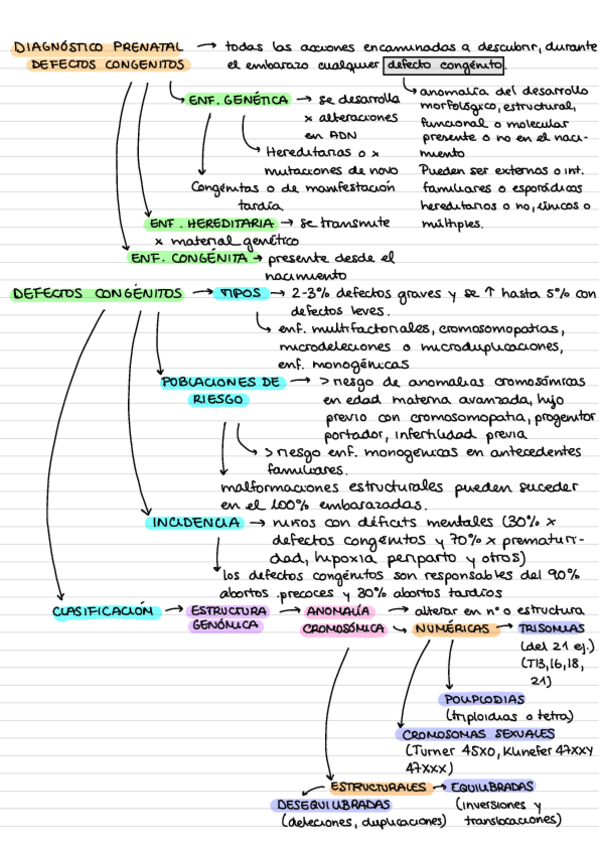 DIAGNÓSTICO PRENATAL → todas las acciones encaminadas a descubrir, durante
DEFECTOS CONGENITOS el embarazo cualquier defecto congénito.
ENF. GENÉTICA → se desarrolla
x alteraciones
en ADN
Hereditarias o x
mutaciones de novo
Congénitas o de manifestación
tardía.
anomalía del desarrollo
morfológico, estructural,
funcional o molecular
presente o no en el naci-
miento
Pueden ser externos o int.
familiares o esporádicos
hereditarios o no, únicos o
múltiples.
ENF. HEREDITARIA → se transmite
x material genético
ENF. CONGÉNITA → presente desde el
nacimiento
DEFECTOS CONGÉNITOS → TIPOS → 2-3% defectos graves y se ↑ hasta 5% con
defectos leves.
enf. multifactoriales, cromosomopatías,
microdeleciones o microduplicaciones,
enf. monogénicas
POBLACIONES DE → > riesgo de anomalías cromosómicas
RIESGO en edad materna avanzada, hijo
previo con cromosomopatía, progenitor
portador, infertilidad previa
> riesgo enf. monogénicas en antecedentes
familiares.
malformaciones estructurales pueden suceder
en el 100% embarazadas.
INCIDENCIA → niños con déficits mentales (30% x
defectos congénitos y 70% x prematuri-
dad, hipoxia periparto y otros)
los defectos congénitos son responsables del 90%
abortos precoces y 30% abortos tardíos
CLASIFICACIÓN → ESTRUCTURA → ANOMALÍA → alterar en nº o estructura
GENÓMICA CROMOSÓMICA → NUMÉRICAS → TRISOMIAS
(del 21 ej.)
(T13,16,18,
21)
POLIPLODIAS
(triploidias o tetra)
CROMOSOMAS SEXUALES
(Turner 45X0, Klinefer 47XXY
47XXX)
ESTRUCTURALES → EQUILIBRADAS
DESEQUILIBRADAS (inversiones y
(deleciones, duplicaciones) translocaciones)